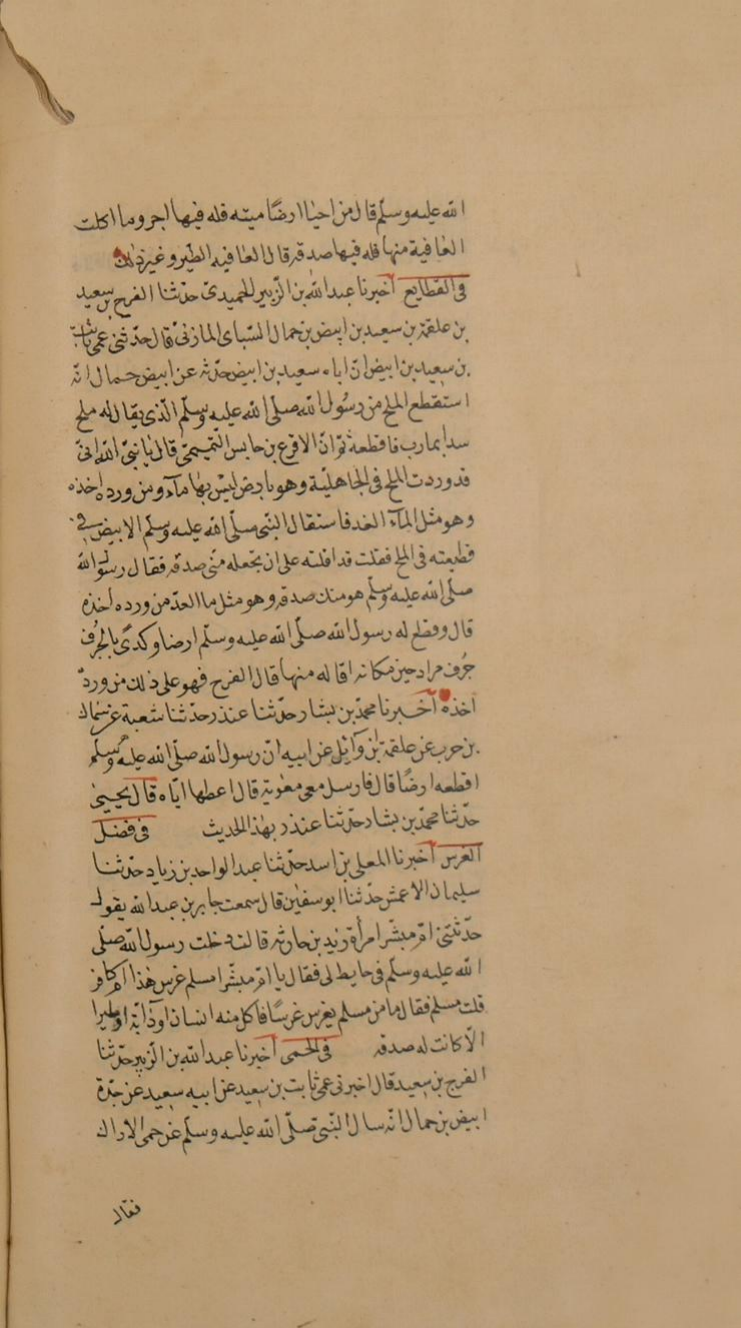 الله عليه وسلم قال من احيا ارضا ميته فله فيها اجر وما اكلت
العافية منها فله فيها صدقه قال العافيه الطير وغير ذلك
فى القطايع اخبرنا عبد الله بن الزبير الحميدى حدثنا الفرج بن سعيد
بن علقمة بن سعيد بن ابيض بن حمال السبائ المازنى قال حدثنى عمى ثابت
بن سعيد بن ابيض ان اباه سعيد بن ابيض حدثه عن ابيض حمال انه
استقطع الملح من رسول الله صلى الله عليه وسلم الذى يقال له ملح
سدا بمارب فاقطعه ثم ان الاقرع بن حابس التميمى قال يا نبى الله انى
قد وردت الملح فى الجاهلية وهو بارض ليس بها مآء ومن ورده اخذه
وهو مثل المآء العد فاستقال النبى صلى الله عليه وسلم الابيض فى
قطيعته فى الملح فقلت قد اقلته على ان تجعله منى صدقه فقال رسول الله
صلى الله عليه وسلم هو منك صدقه وهو مثل ما العد من ورده اخذه
قال وقطع له رسول الله صلى الله عليه وسلم ارضا وكدى بالجرف
جرف مراد حين مكانه اقاله منها قال الفرج فهو على ذلك من ورد
اخذه اخبرنا محمد بن بشار حدثنا غندر حدثنا شعبة عن سماك
بن حرب عن علقمة بن وآئل عن ابيه ان رسول الله صلى الله عليه وسلم
اقطعه ارضا قال فارسل معى معوية قال اعطها اياه قال يحيى
حدثنا محمد بن بشار حدثنا غندر بهذا الحديث فى فضل
الغرس اخبرنا المعلى بن اسد حدثنا عبد الواحد بن زياد حدثنا
سليمان الاعمش حدثنا ابو سفين قال سمعت جابر بن عبد الله يقول
حدثتنى ام مبشر امرأة زيد بن حارثه قالت دخلت رسول الله صلى
الله عليه وسلم فى حايط لى فقال يا ام مبشر امسلم غرس هذا ام كافر
قلت مسلم فقال ما من مسلم يغرس غرسا فاكل منه انسان او دآبة او طيرا
الا كانت له صدقه فى الحمى اخبرنا عبد الله بن الزبير حدثنا
الفرج بن سعيد قال اخبرنى عمى ثابت بن سعيد عن ابيه سعيد عن جدة
ابيض بن حمال انه سال النبى صلى الله عليه وسلم عن حمى الاراك
فقال